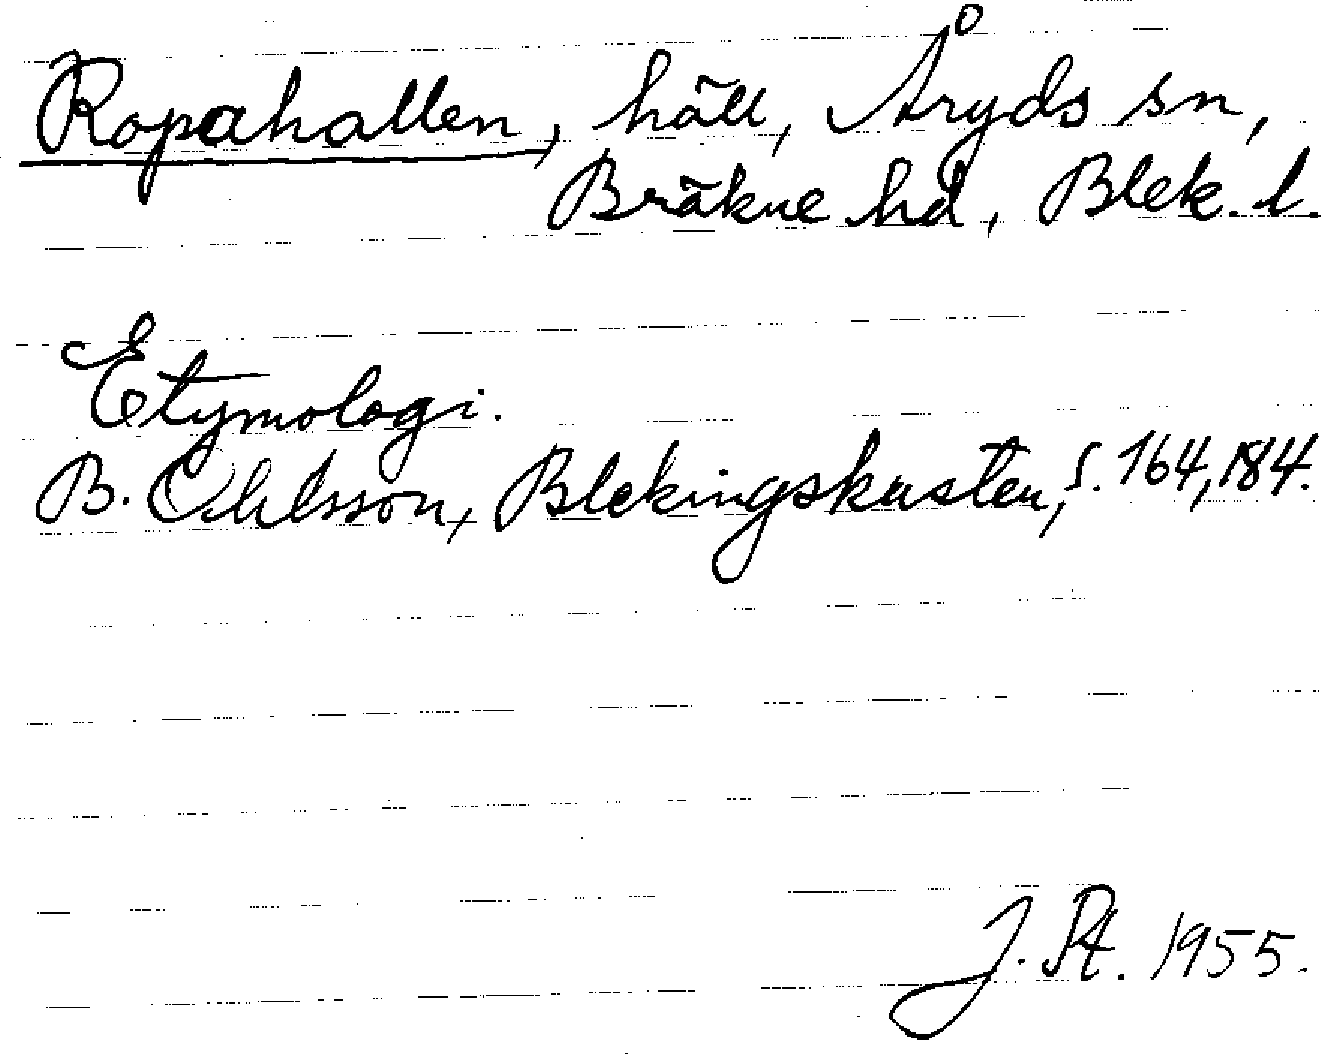 Ropahallen, häll, Åryds sn,
Bräkne hd, Blek. l.
Etymologi.
B. Ohlsson, Blekingskusten, s. 164, 184.
J. Pt. 1955.